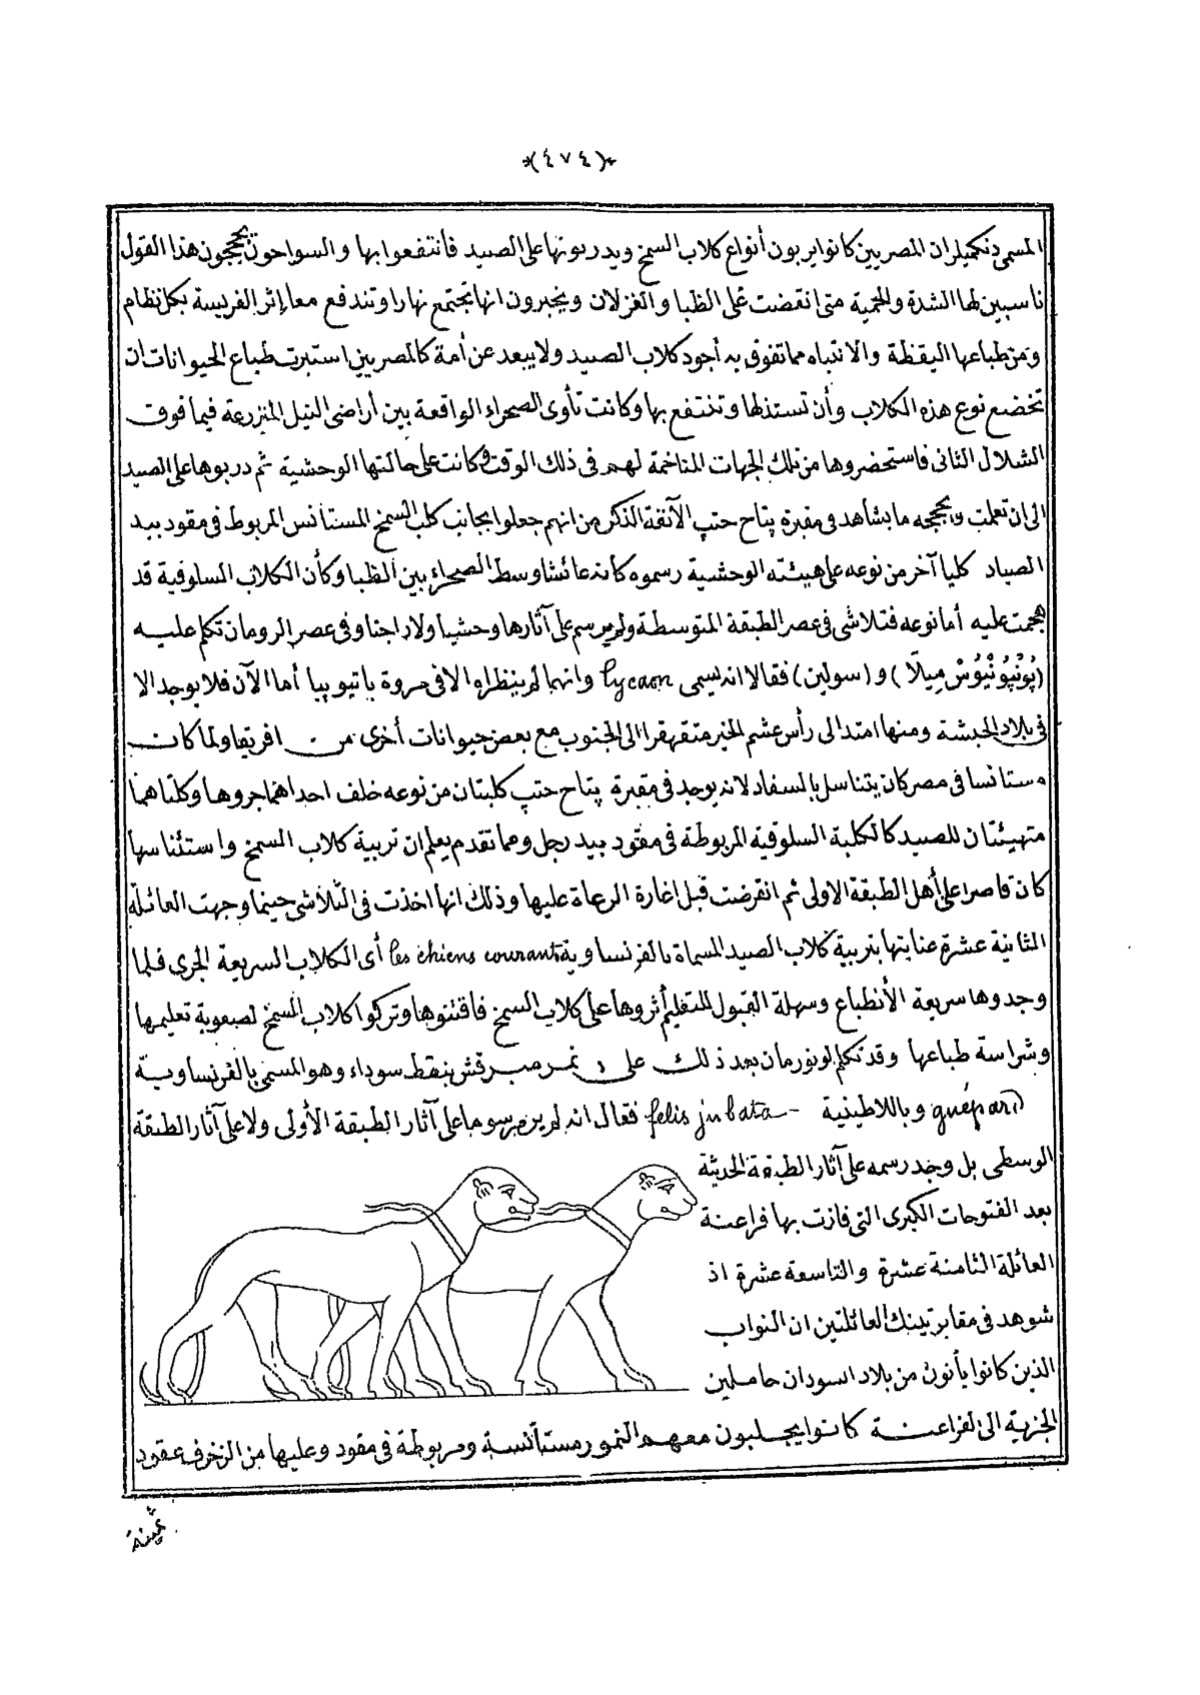 ﴿٤٧٤﴾
المسمى دنكميلران المصريين كانوا يربون أنواع كلاب السمخ ويدربونها على الصيد فانتفعوا بها والسواحون يحججون هذا القول
ناسبين لها الشدة والحمية متى انقضت على الظبا والغزلان ويخبرون انها تجتمع نهارا وتندفع معا إثر الفريسة بكل نظام
ومن طباعها اليقظة والانتباه مما تفوق به أجود كلاب الصيد ولا يبعد عن أمة كالمصريين استبرت طباع الحيوانات ان
تخضع نوع هذه الكلاب وأن تستذلها وتنتفع بها وكانت تأوى الصحراء الواقعة بين أراضى النيل المنزرعة فيما فوق
الشلال الثانى فاستحضروها من تلك الجهات المتاخمة لهم فى ذلك الوقت وكانت على حالتها الوحشية ثم دربوها على الصيد
الى ان تعلمت ويحججه ما يشاهد فى مقبرة پتاح حتپ الآنفة الذكر من انهم جعلوا بجانب كلب السمخ المستأنس المربوط فى مقود بيد
الصياد كلبا آخر من نوعه على هيئته الوحشية رسموه كانه عائشا وسط الصحراء بين الظبا وكأن الكلاب السلوقية قد
هجمت عليه أما نوعه فتلاشى فى عصر الطبقة المتوسطة ولم يرسم على آثارها وحشيا ولا داجنا وفى عصر الرومان تكلم عليه
(پُونْپُونْيُوسْ مِيلَا) و (سولين) فقالا انه يسمى lycaon وانهما لم ينظراه الا فى مروة باتيوبيا أما الآن فلا يوجد الا
فى بلاد الحبشة ومنها امتد الى رأس عشم الخير متقهقرا الى الجنوب مع بعض حيوانات أخرى من افريقا ولما كان
مستانسا فى مصر كان يتناسل بالسفاد لانه يوجد فى مقبرة پتاح حتپ كلبتان من نوعه خلف احداهما جروها وكلتاهما
متهيئتان للصيد كالكلبة السلوقية المربوطة فى مقود بيد رجل ومما تقدم يعلم ان تربية كلاب السمخ واستئناسها
كان قاصرا على أهل الطبقة الاولى ثم انقرضت قبل اغارة الرعاة عليها وذلك انها اخذت فى التلاشى حينما وجهت العائلة
الثانية عشرة عنايتها بتربية كلاب الصيد المسماة بالفرنساوية les chiens courants أى الكلاب السريعة الجرى فلما
وجدوها سريعة الأنطباع وسهلة القبول للتعليم أثروها على كلاب السمخ فاقتنوها وتركوا كلاب السمخ لصعوبة تعليمها
وشراسة طباعها وقد تكلم لونورمان بعد ذلك على نمر مبرقش بنقط سوداء وهو المسمى بالفرنساوية
guépard وباللاطينية felis jubata فقال انه لم ير مرسوما على آثار الطبقة الأولى ولا على آثار الطبقة
الوسطى بل وجد رسمه على آثار الطبقة الحديثة
بعد الفتوحات الكبرى التى فازت بها فراعنة
العائلة الثامنة عشرة والتاسعة عشرة اذ
شوهد فى مقابر تينك العائلتين ان النواب
الذين كانوا يأتون من بلاد اسودان حاملين
الجزية الى الفراعنة كانوا يجلبون معهم النمور مستأنسة ومربوطة فى مقود وعليها من الزخرف عقود
ثمينة